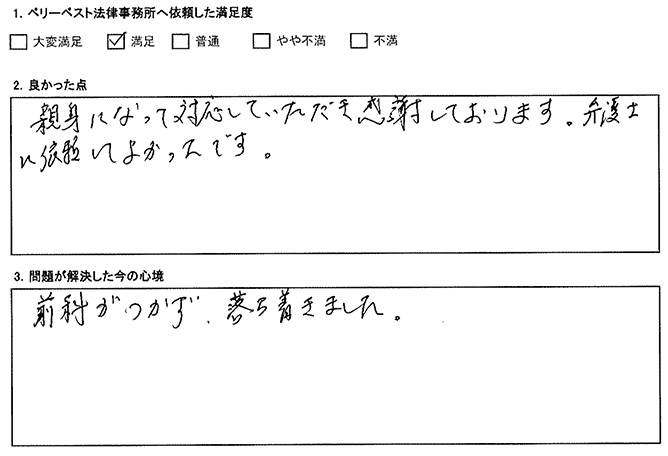 1. ベリーベスト法律事務所へ依頼した満足度
□ 大変満足 ☑ 満足 □ 普通 □ やや不満 □ 不満
2. 良かった点
親身になって対応していただき感謝しております。弁護士
に依頼してよかったです。
3. 問題が解決した今の心境
前科がつかず、落ち着きました。